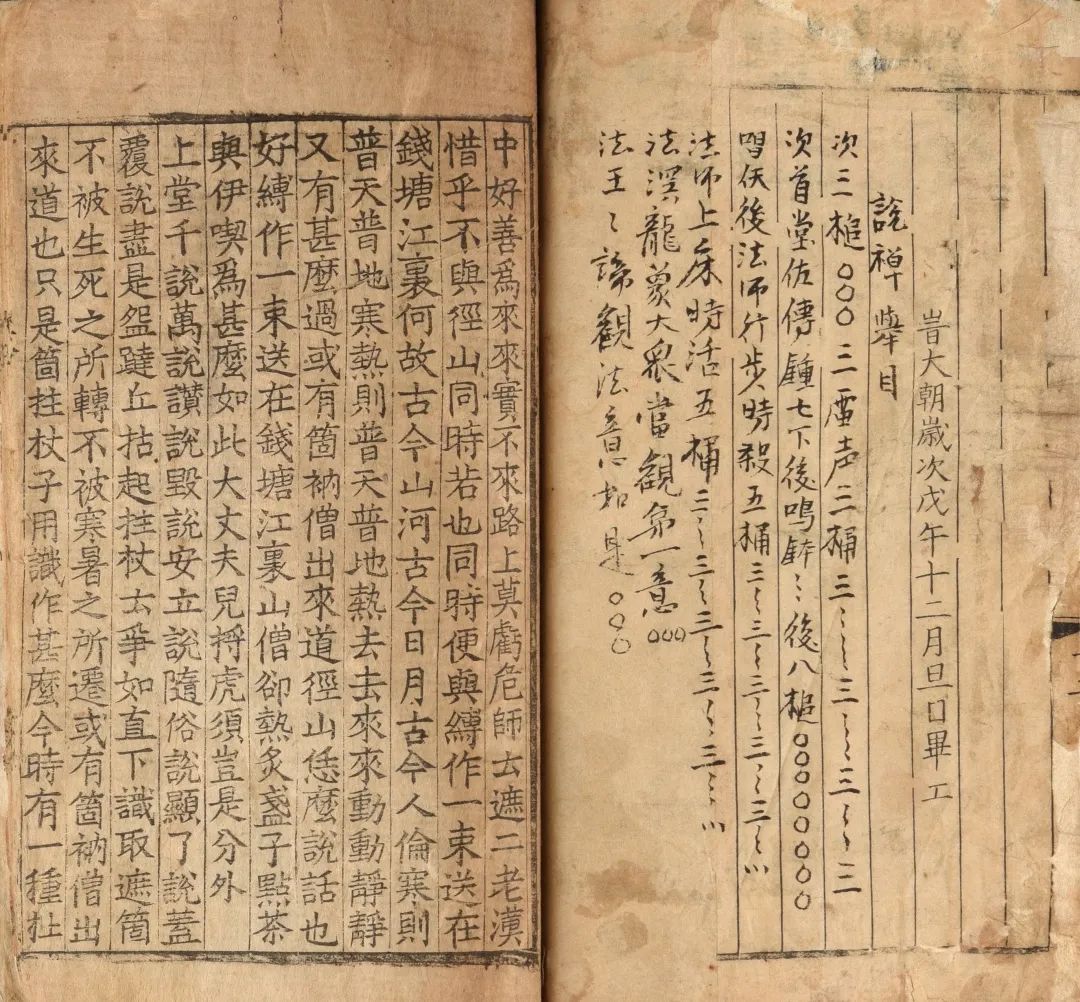 旹大朝歲次戊午十二月旦口畢工
說禅擧目
次三槌〇〇〇三雷声三桶三〻〻三〻〻三〻〻三
次首堂佐傳鍾七下後鳴鉢〻〻後八槌〇〇〇〇〇〇〇〇
後法師行步時殺五桶三〻三〻三〻三〻三〻
法師上床時活五桶三〻三〻三〻三〻三〻
法深龍蒙大衆當觀第一意〇〇〇
法王〻諦觀法意如是〇〇〇
中好善爲來來實不來路上莫虧危師去遮二老漢
惜乎不與徑山同時若也同時便與縛作一束送在
錢塘江裏何故古今山河古今日月古今人倫寒則
普天普地寒熱則普天普地熱去去來來動動靜靜
又有甚麼過或有箇衲僧出來道徑山恁麼說話也
好縛作一束送在錢塘江裏山僧卻熱炙盞子點茶
與伊喫爲甚麼如此大丈夫兒捋虎須豈是分外
上堂千說萬說讃說毀說安立說隨俗說顯了說蓋
覆說盡是𥁊躂丘拈起拄杖云爭如直下識取遮箇
不被生死之所轉不被寒暑之所遷或有箇衲僧出
來道也只是箇拄杖子用識作甚麼今時有一種扯